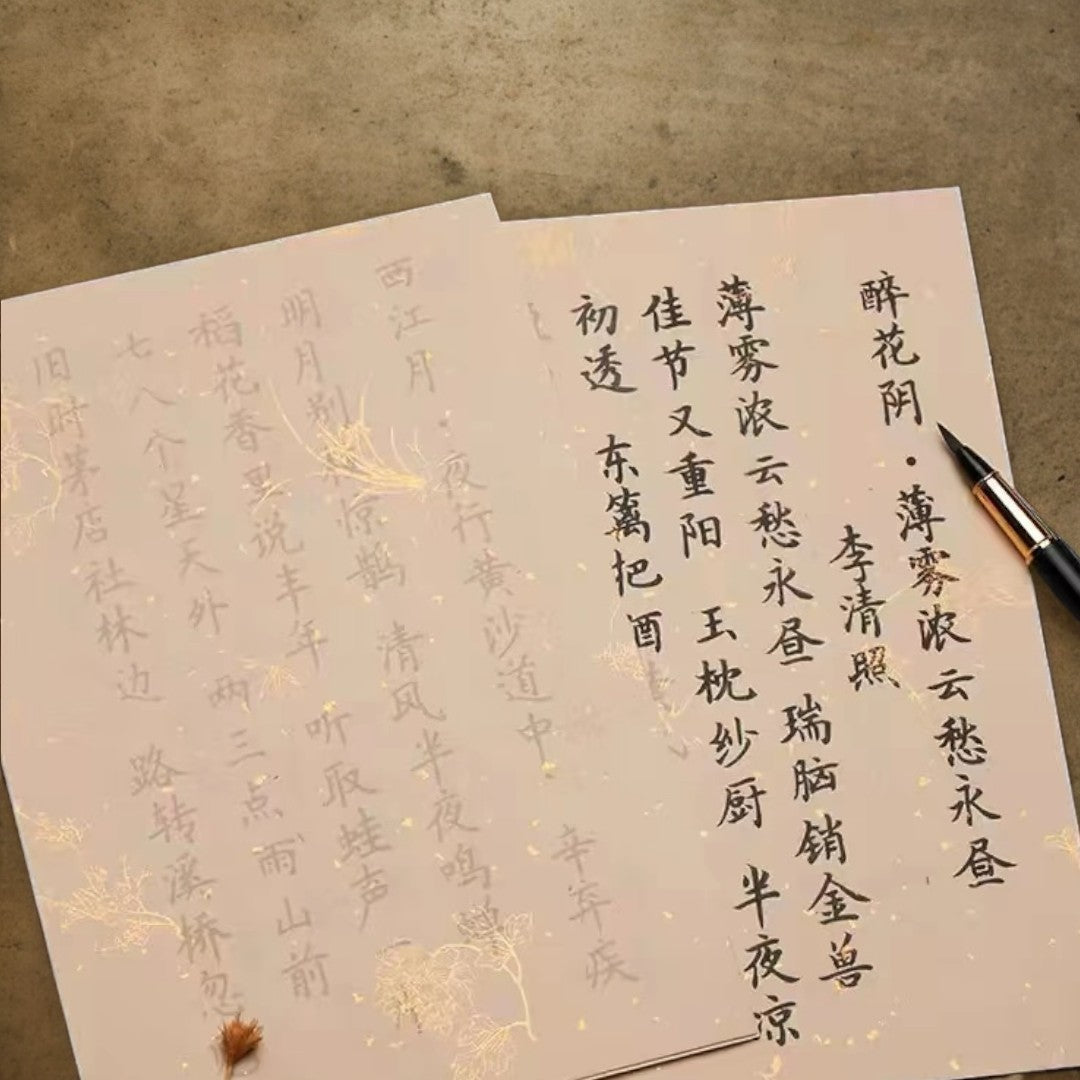 醉花阴·薄雾浓云愁永昼
李清照
薄雾浓云愁永昼 瑞脑销金兽
佳节又重阳 玉枕纱厨 半夜凉
初透 东篱把酒
西江月·夜行黄沙道中
辛弃疾
明月别枝惊鹊 清风半夜鸣
稻花香里说丰年 听取蛙声一
七八个星天外 两三点雨 山前
旧时茅店社林边 路转溪桥忽